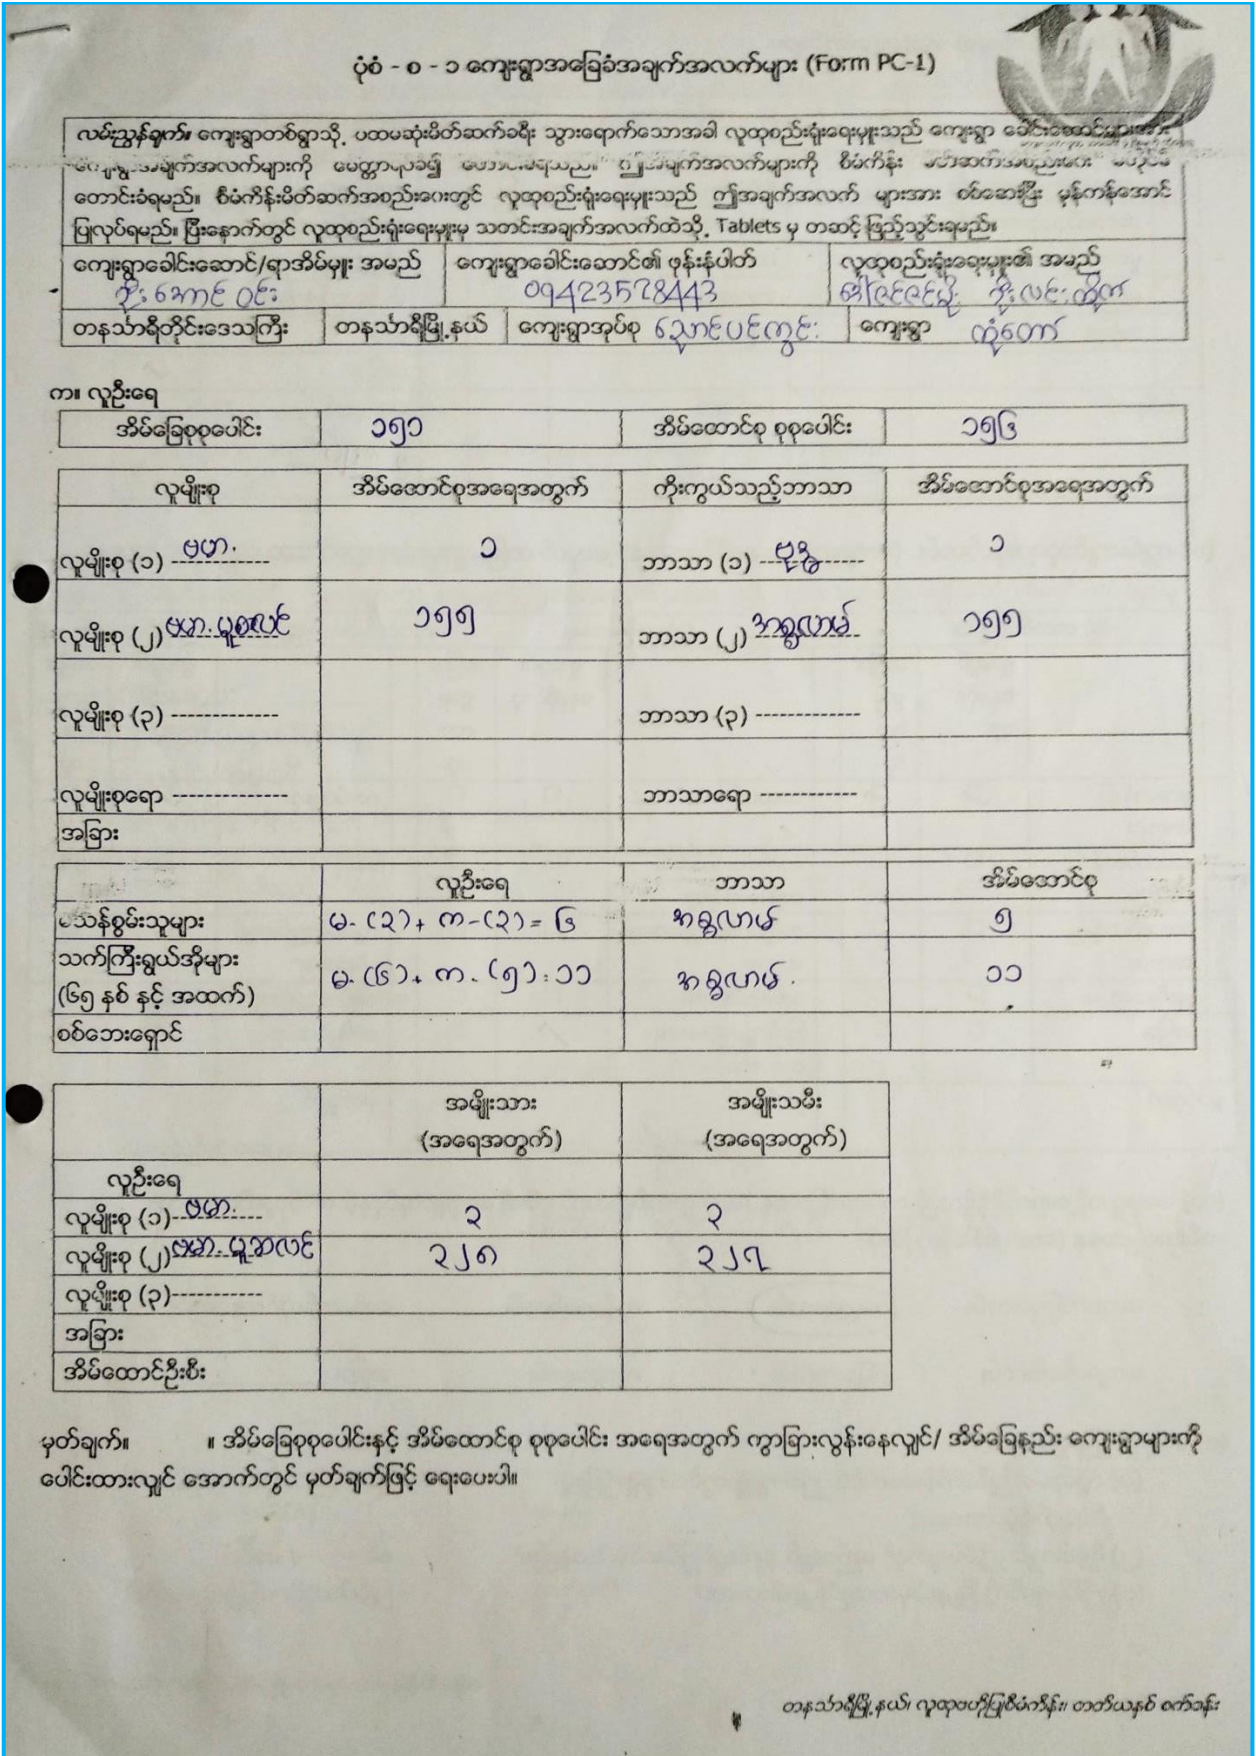 ပုံစံ - စ - ၁ ကျေးရွာအခြေခံအချက်အလက်များ (Form PC-1)
လမ်းညွှန်ချက်။ ကျေးရွာတစ်ရွာသို့ ပထမဆုံးမိတ်ဆက်ခရီး သွားရောက်သောအခါ လူထုစည်းရုံးရေးမှူးသည် ကျေးရွာ ခေါင်းဆောင်များအား
ကျေးရွာအချက်အလက်များကို မေတ္တာရပ်ခံ၍ တောင်းခံရမည်။ ဤအချက်အလက်များကို စီမံကိန်း မိတ်ဆက်အစည်းဝေး မတိုင်မီ
တောင်းခံရမည်။ စီမံကိန်းမိတ်ဆက်အစည်းဝေးတွင် လူထုစည်းရုံးရေးမှူးသည် ဤအချက်အလက် များအား စစ်ဆေးပြီး မှန်ကန်အောင်
ပြုလုပ်ရမည်။ ပြီးနောက်တွင် လူထုစည်းရုံးရေးမှူးမှ သတင်းအချက်အလက်ထဲသို့ Tablets မှ တဆင့် ဖြည့်သွင်းရမည်။
ကျေးရွာခေါင်းဆောင်/ရာအိမ်မှူး အမည် ကျေးရွာခေါင်းဆောင်၏ ဖုန်းနံပါတ် လူထုစည်းရုံးရေးမှူး၏ အမည်
ဦးအောင်ဝင်း 09423578443
တနင်္သာရီတိုင်းဒေသကြီး တနင်္သာရီမြို့နယ် ကျေးရွာအုပ်စု ညောင်ပင်ကွင်း ကျေးရွာ ကုံတော်
က။ လူဦးရေ
အိမ်ခြေစုစုပေါင်း ၁၅၁ အိမ်ထောင်စု စုစုပေါင်း ၁၅၆
လူမျိုးစု အိမ်ထောင်စုအရေအတွက် ကိုးကွယ်သည့်ဘာသာ အိမ်ထောင်စုအရေအတွက်
လူမျိုးစု (၁) ဗမာ ၁ ဘာသာ (၁) ဗုဒ္ဓ ၁
လူမျိုးစု (၂) ဗမာ.မူစလင် ၁၅၅ ဘာသာ (၂) အစ္စလာမ် ၁၅၅
လူမျိုးစု (၃) ------------- ဘာသာ (၃) -------------
လူမျိုးစုရော -------------- ဘာသာရော ------------
အခြား
လူဦးရေ ဘာသာ အိမ်ထောင်စု
မသန်စွမ်းသူများ မ-(၃)+ က-(၃)= ၆ အစ္စလာမ် ၅
သက်ကြီးရွယ်အိုများ
(၆၅ နှစ် နှင့် အထက်) မ-(၆)+ က-(၅)=၁၁ အစ္စလာမ် ၁၁
စစ်ဘေးရှောင်
အမျိုးသား အမျိုးသမီး
(အရေအတွက်) (အရေအတွက်)
လူဦးရေ
လူမျိုးစု (၁) ဗမာ ၃ ၃
လူမျိုးစု (၂) ဗမာ.မူဆလင် ၃၂၈ ၃၂၇
လူမျိုးစု (၃)-----------
အခြား
အိမ်ထောင်ဦးစီး
မှတ်ချက်။ ။ အိမ်ခြေစုစုပေါင်းနှင့် အိမ်ထောင်စု စုစုပေါင်း အရေအတွက် ကွာခြားလွန်းနေလျှင်/ အိမ်ခြေနည်း ကျေးရွာများကို
ပေါင်းထားလျှင် အောက်တွင် မှတ်ချက်ဖြင့် ရေးပေးပါ။
တနင်္သာရီမြို့နယ်၊ လူထုဗဟိုပြုစီမံကိန်း၊ တတိယနှစ် စက်ဝန်း